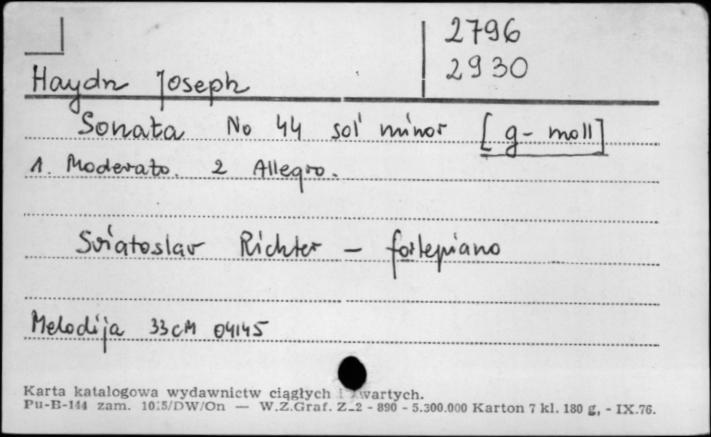 2796
2930
Haydn Joseph
Sonata No 44 sol minor [g-moll]
1. Moderato. 2 Allegro.
Sviatoslav Richter – fortepiano
Melodija 33CM 04145
Karta katalogowa wydawnictw ciągłych i zwartych.
Pu-B-144 zam. /DW/On — W.Z.Graf. Z-2 - 890 - 5.300.000 Karton 7 kl. 180 g, - IX.76.